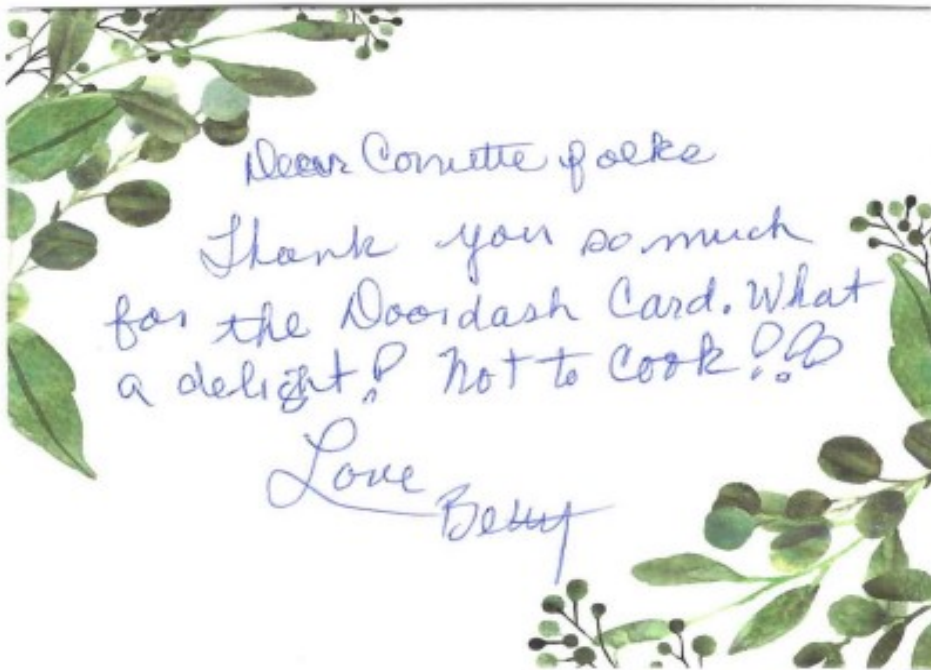 Dear Corvette folks
Thank you so much
for the Doordash Card. What
a delight! Not to cook!!
Love
Betty